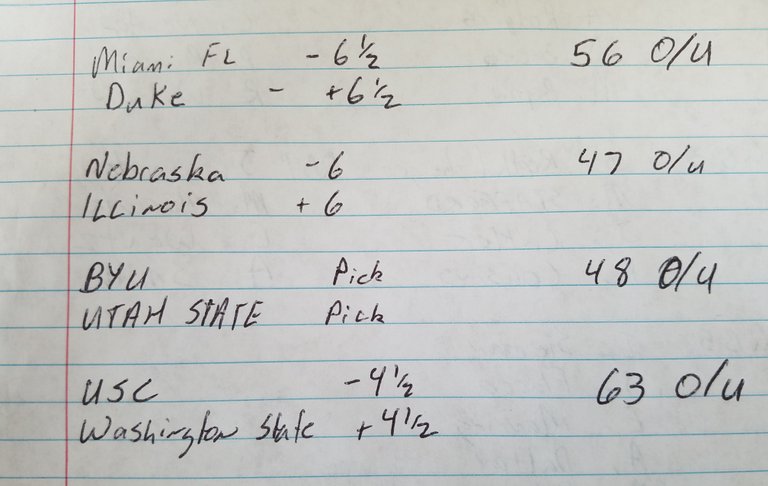 Miami FL -6½ 56 O/U
Duke - +6½
Nebraska -6 47 O/U
ILLinois +6
BYU Pick 48 O/U
UTAH STATE Pick
USC -4½ 63 O/U
Washington State +4½